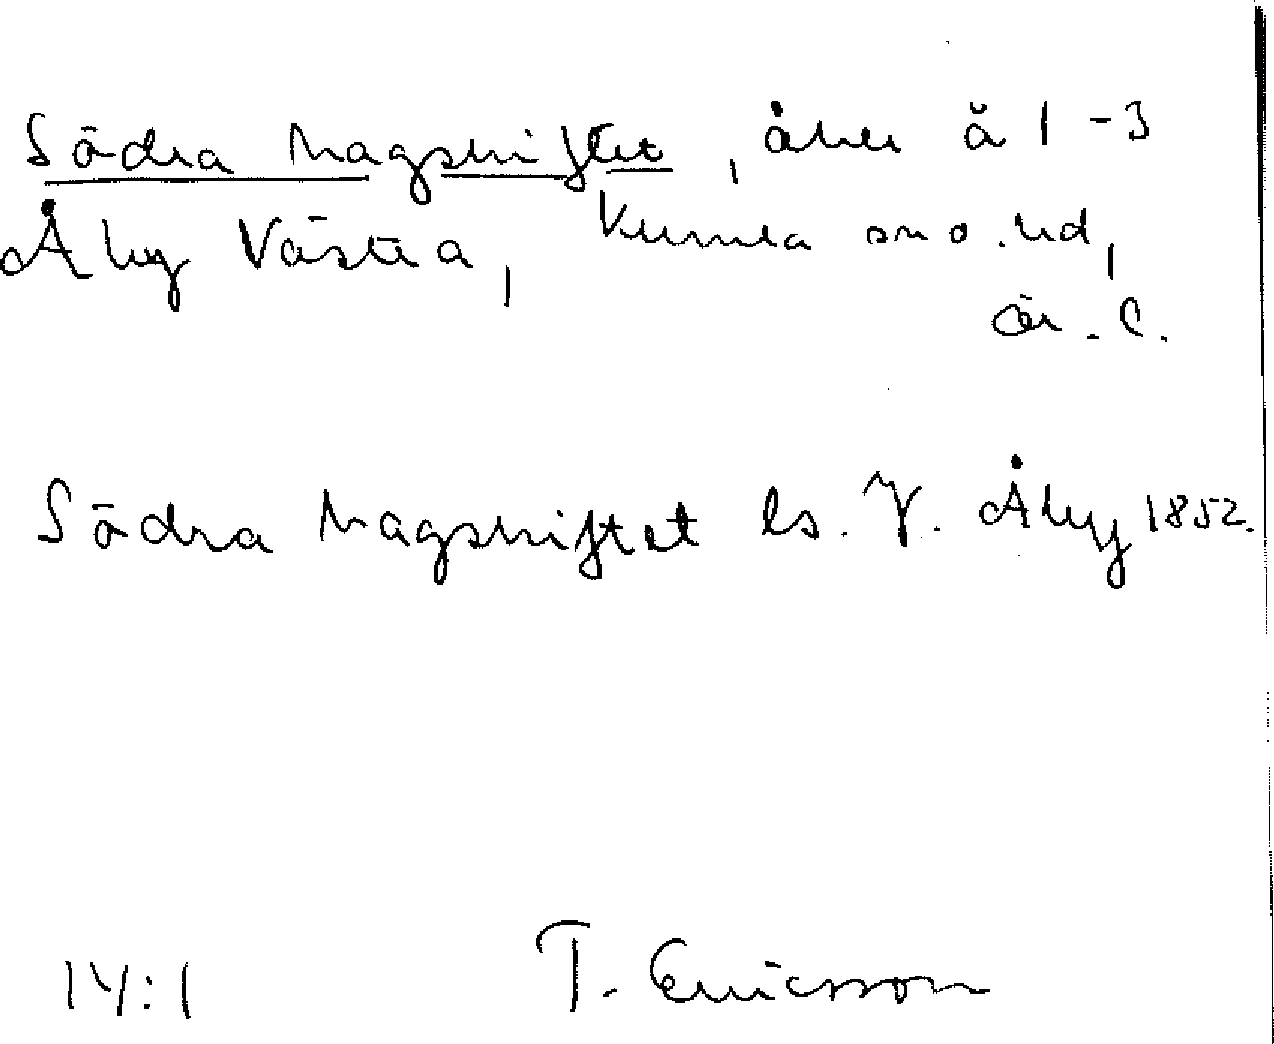 Södra Hagskiftet, åker å 1-3
Åby Västra, Kumla sn o. hd,
Ör. l.
Södra Hagskiftet ls. V. Åby 1852.
14:1 T. Ericsson